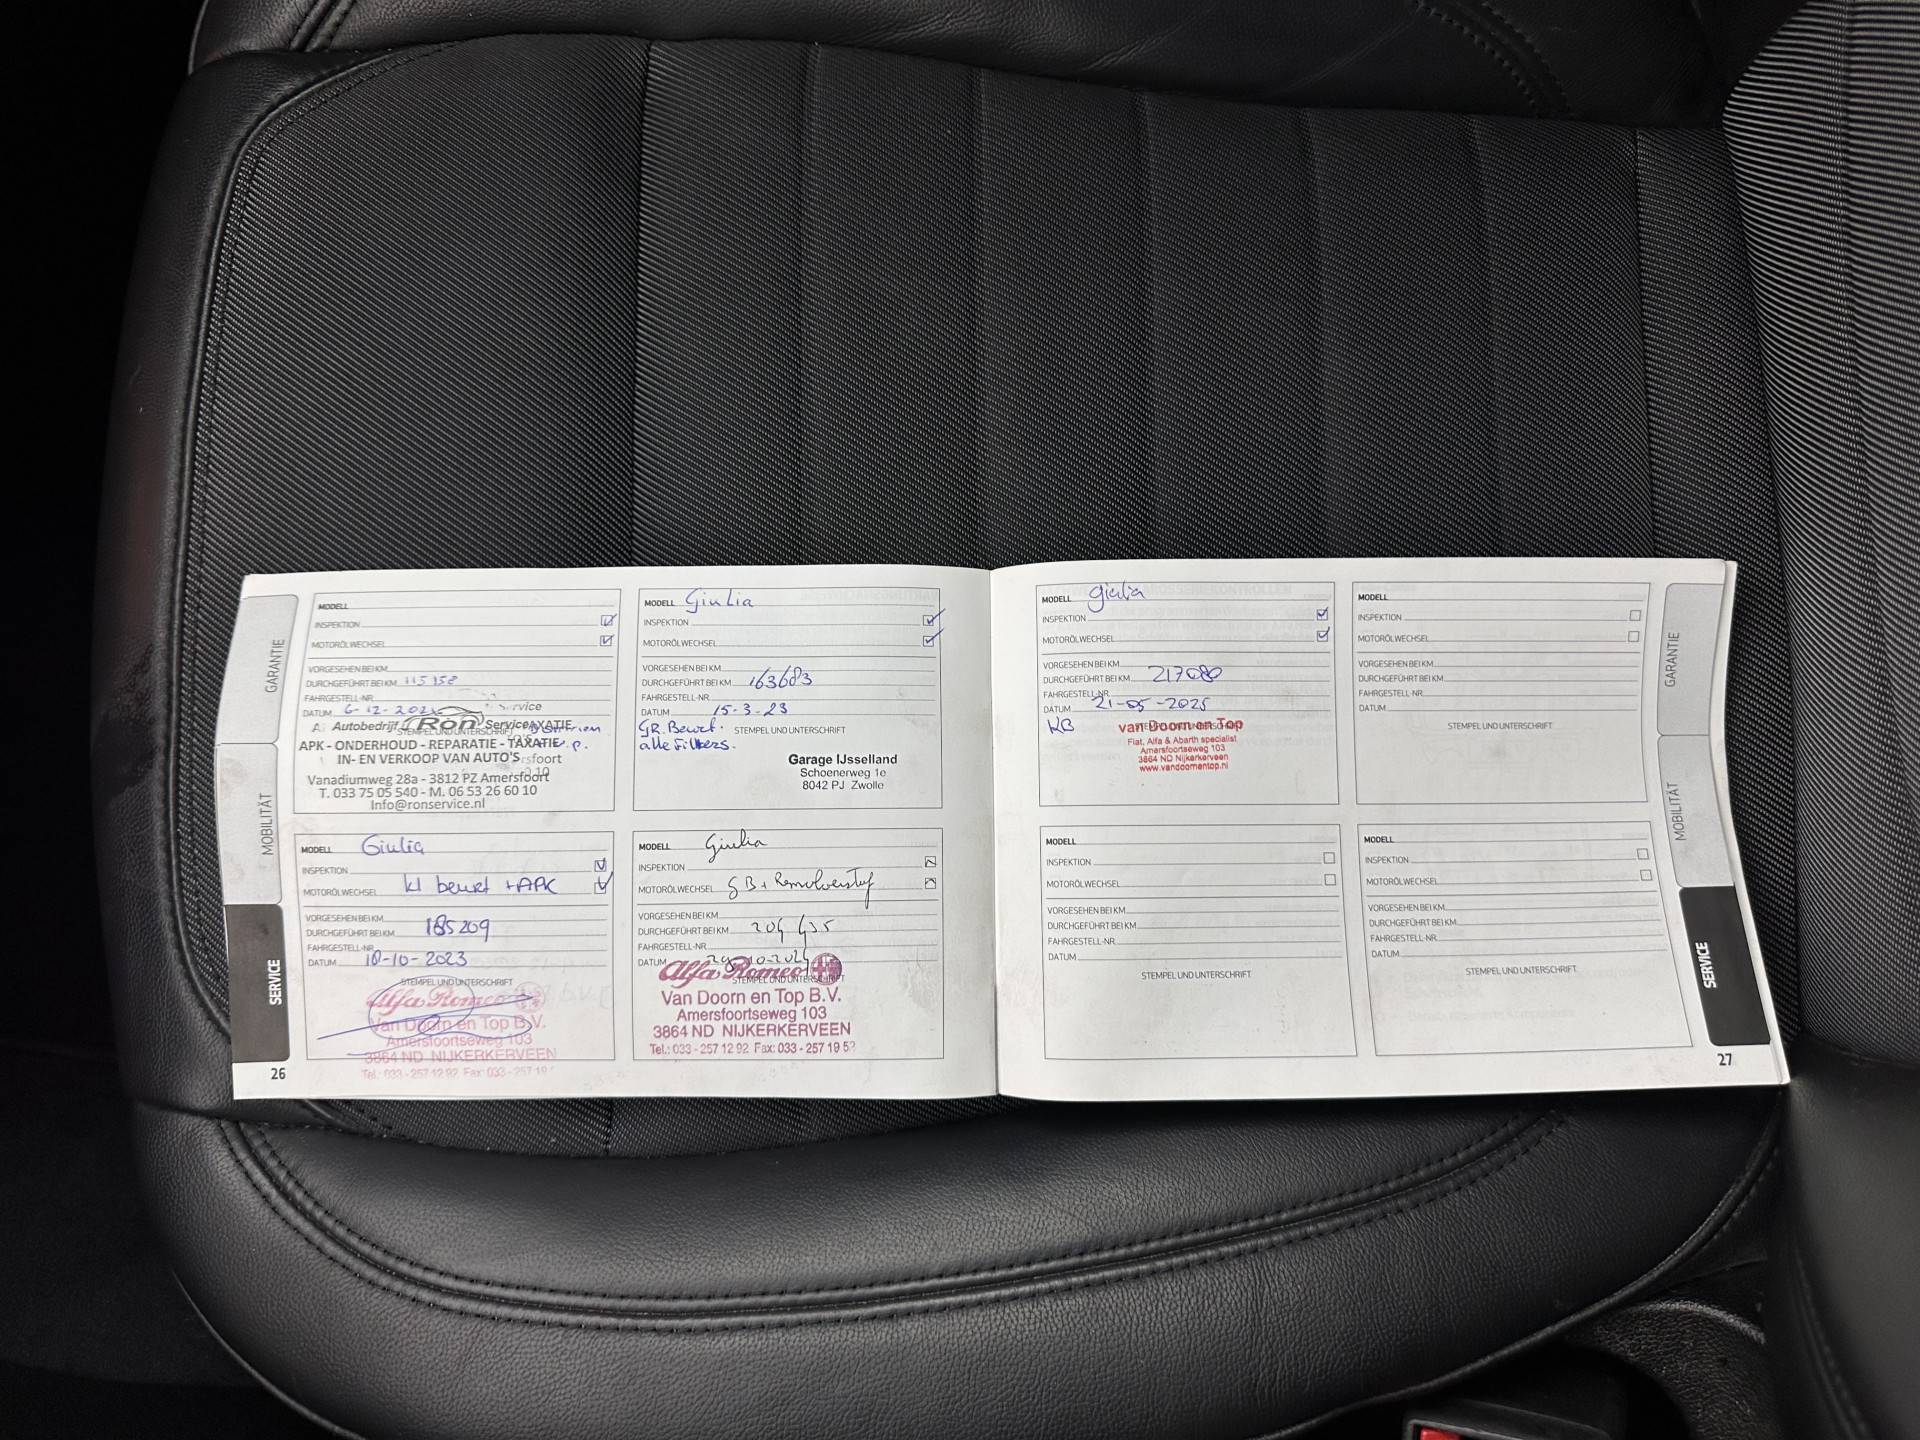 GARANTIE
MOBILITÄT
SERVICE
MODELL
INSPEKTION
MOTORÖLWECHSEL
VORGESEHEN BEI KM
DURCHGEFÜHRT BEI KM
FAHRGESTELL-NR.
DATUM 6-12-
STEMPEL UND UNTERSCHRIFT
Autobedrijf Ron Service
APK - ONDERHOUD - REPARATIE - TAXATIE
IN- EN VERKOOP VAN AUTO'S
Vanadiumweg 28a - 3812 PZ Amersfoort
T. 033 75 05 540 - M. 06 53 26 60 10
Info@ronservice.nl
MODELL Giulia
INSPEKTION
MOTORÖLWECHSEL
VORGESEHEN BEI KM
DURCHGEFÜHRT BEI KM 163683
FAHRGESTELL-NR.
DATUM 15-3-23
GR. Beurt.
STEMPEL UND UNTERSCHRIFT
alle Filters.
Garage IJsselland
Schoenerweg 1e
8042 PJ Zwolle
MODELL Giulia
INSPEKTION
MOTORÖLWECHSEL kl beurt + APK
VORGESEHEN BEI KM
DURCHGEFÜHRT BEI KM 185209
FAHRGESTELL-NR.
DATUM 10-10-2023
STEMPEL UND UNTERSCHRIFT
Alfa Romeo
Van Doorn en Top B.V.
Amersfoortseweg 103
3864 ND NIJKERKERVEEN
Tel.: 033 - 257 12 92 Fax: 033 - 257 19
MODELL Giulia
INSPEKTION
MOTORÖLWECHSEL GB + Remvloeistof
VORGESEHEN BEI KM
DURCHGEFÜHRT BEI KM
FAHRGESTELL-NR.
DATUM 29-10-2024
STEMPEL UND UNTERSCHRIFT
Alfa Romeo
Van Doorn en Top B.V.
Amersfoortseweg 103
3864 ND NIJKERKERVEEN
Tel.: 033 - 257 12 92 Fax: 033 - 257 19 5
26
MODELL Giulia
INSPEKTION
MOTORÖLWECHSEL
VORGESEHEN BEI KM
DURCHGEFÜHRT BEI KM 217080
FAHRGESTELL-NR.
DATUM 21-05-2025
KB
STEMPEL UND UNTERSCHRIFT
van Doorn en Top
Fiat, Alfa & Abarth specialist
Amersfoortseweg 103
3864 ND Nijkerkerveen
www.vandoornentop.nl
MODELL
INSPEKTION
MOTORÖLWECHSEL
VORGESEHEN BEI KM
DURCHGEFÜHRT BEI KM
FAHRGESTELL-NR.
DATUM
STEMPEL UND UNTERSCHRIFT
MODELL
INSPEKTION
MOTORÖLWECHSEL
VORGESEHEN BEI KM
DURCHGEFÜHRT BEI KM
FAHRGESTELL-NR.
DATUM
STEMPEL UND UNTERSCHRIFT
MODELL
INSPEKTION
MOTORÖLWECHSEL
VORGESEHEN BEI KM
DURCHGEFÜHRT BEI KM
FAHRGESTELL-NR.
DATUM
STEMPEL UND UNTERSCHRIFT
GARANTIE
MOBILITÄT
SERVICE
27